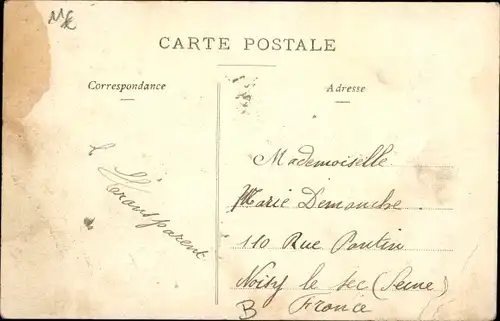 CARTE POSTALE
Correspondance
Adresse
Transparent
Mademoiselle
Marie Demanche
110 Rue Pantin
Noisy le Sec (Seine)
B France